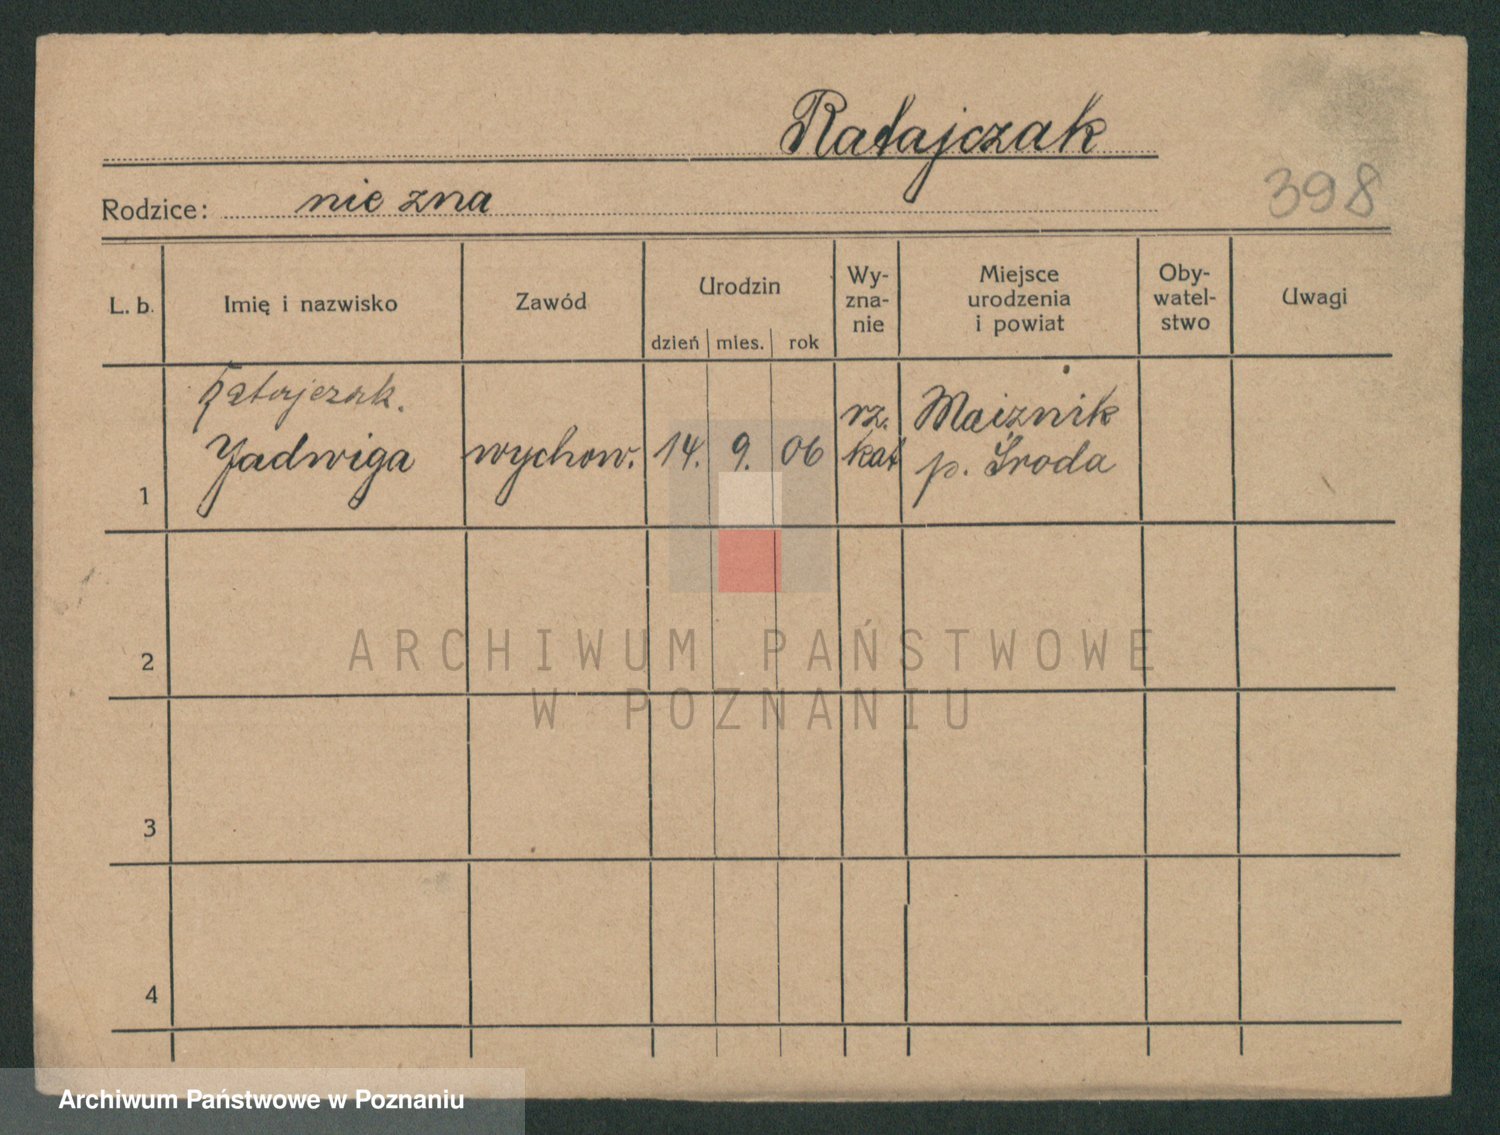 Ratajczak
398
Rodzice: nie zna
L. b. Imię i nazwisko Zawód Urodzin Wy-zna-nie Miejsce urodzenia i powiat Oby-watel-stwo Uwagi
dzień mies. rok
Ratajczak.
1 Jadwiga wychow. 14. 9. 06 rz. kat Maiznik p. Środa
2
ARCHIWUM PAŃSTWOWE
W POZNANIU
3
4
Archiwum Państwowe w Poznaniu